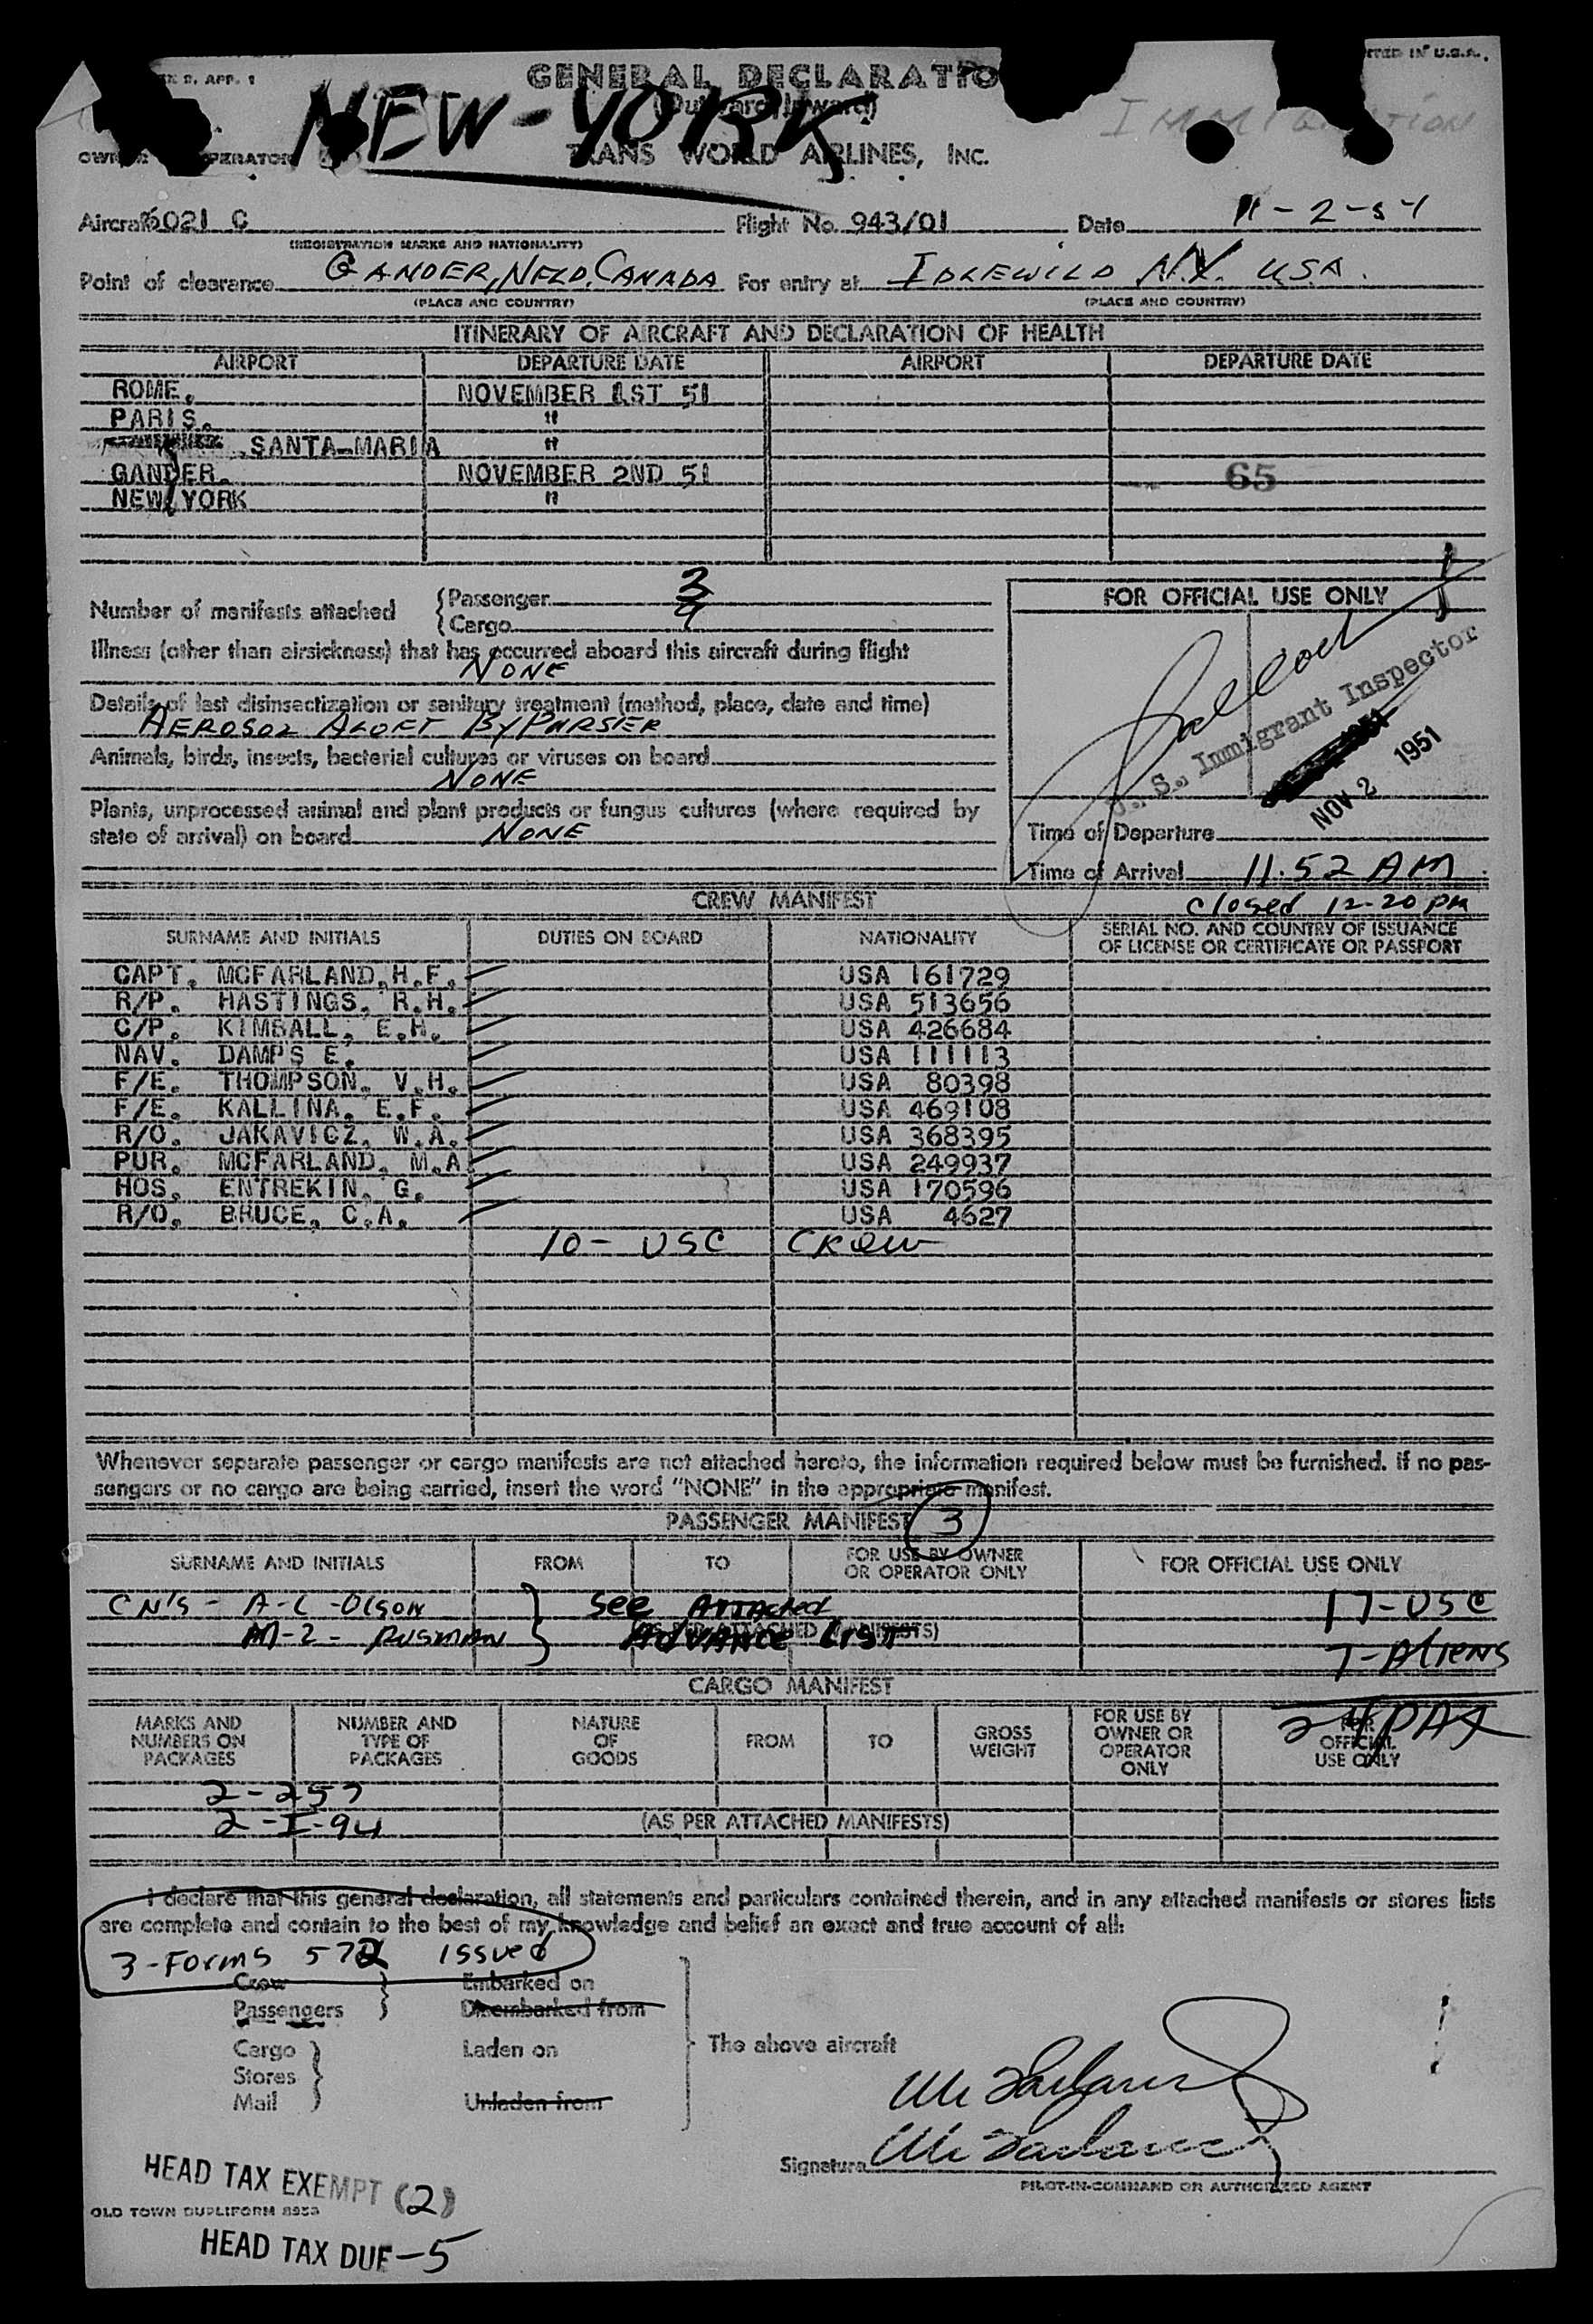 GENERAL DECLARATIO
(Outward/Inward)
NEW-YORK
IMMIGRATION
TRANS WORLD AIRLINES, INC.
Aircraft 6021 C Flight No. 943/01 Date 11-2-51
(REGISTRATION MARKS AND NATIONALITY)
Point of clearance GANDER, NFLD. CANADA For entry at IDLEWILD N.Y. USA.
(PLACE AND COUNTRY) (PLACE AND COUNTRY)
ITINERARY OF AIRCRAFT AND DECLARATION OF HEALTH
AIRPORT DEPARTURE DATE AIRPORT DEPARTURE DATE
ROME. NOVEMBER 1ST 51
PARIS. "
SANTA-MARIA "
GANDER. NOVEMBER 2ND 51 65
NEW YORK "
Number of manifests attached
Passenger 3
Cargo 9
Illness (other than airsickness) that has occurred aboard this aircraft during flight
NONE
Details of last disinsectization or sanitary treatment (method, place, date and time)
AEROSOL ALOFT BY PURSER
Animals, birds, insects, bacterial cultures or viruses on board
NONE
Plants, unprocessed animal and plant products or fungus cultures (where required by
state of arrival) on board NONE
FOR OFFICIAL USE ONLY
U. S. Immigrant Inspector
NOV 2 1951
Time of Departure
Time of Arrival 11.52 AM
closed 12-20 PM
CREW MANIFEST
SURNAME AND INITIALS DUTIES ON BOARD NATIONALITY SERIAL NO. AND COUNTRY OF ISSUANCE
OF LICENSE OR CERTIFICATE OR PASSPORT
CAPT. MCFARLAND,H.F. USA 161729
R/P. HASTINGS, R.H. USA 513656
C/P. KIMBALL, E.H. USA 426684
NAV. DAMPS E. USA 111113
F/E. THOMPSON, V.H. USA 80398
F/E. KALLINA, E.F. USA 469108
R/O. JAKAVICZ, W.A. USA 368395
PUR. MCFARLAND, M.A. USA 249937
HOS. ENTREKIN, G. USA 170596
R/O. BRUCE, C.A. USA 4627
10- USC CREW
Whenever separate passenger or cargo manifests are not attached hereto, the information required below must be furnished. If no pas-
sengers or no cargo are being carried, insert the word "NONE" in the appropriate manifest.
PASSENGER MANIFEST 3
SURNAME AND INITIALS FROM TO FOR USE BY OWNER
OR OPERATOR ONLY FOR OFFICIAL USE ONLY
CN'S - A-L-OLSON See Attached 17-USC
M-2- RUSMAN ADVANCE LIST
7-Aliens
24 PAX
CARGO MANIFEST
MARKS AND
NUMBERS ON
PACKAGES
NUMBER AND
TYPE OF
PACKAGES
NATURE
OF
GOODS
FROM
TO
GROSS
WEIGHT
FOR USE BY
OWNER OR
OPERATOR
ONLY
FOR
OFFICIAL
USE ONLY
2-257
2-I-94 (AS PER ATTACHED MANIFESTS)
I declare that this general declaration, all statements and particulars contained therein, and in any attached manifests or stores lists
are complete and contain to the best of my knowledge and belief an exact and true account of all:
3-Forms 572 issued
Crew Embarked on
Passengers Disembarked from
Cargo Laden on The above aircraft
Stores
Mail Unladen from
McFarland
Signature McFarland
PILOT-IN-COMMAND OR AUTHORIZED AGENT
HEAD TAX EXEMPT (2)
OLD TOWN DUPLIFORM 8953
HEAD TAX DUE-5